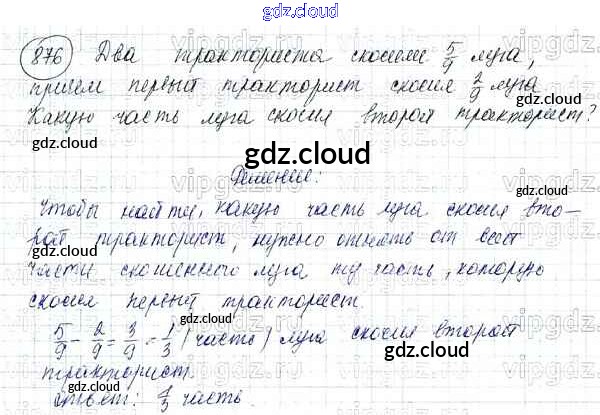 gdz.cloud
876 Два тракториста скосили 5/9 луга,
причем первый тракторист скосил 2/9 луга
Какую часть луга скосил второй тракторист?
gdz.cloud
gdz.cloud
gdz.cloud
Решение:
gdz.cloud
Чтобы найти, какую часть луга скосил вто-
рой тракторист, нужно отнять от всей
части скошенного луга ту часть, которую
скосил первый тракторист.
gdz.cloud
gdz.cloud
5/9 - 2/9 = 3/9 = 1/3 (часть) луга скосил второй
gdz.cloud
тракторист.
gdz.cloud
Ответ: 1/3 часть.